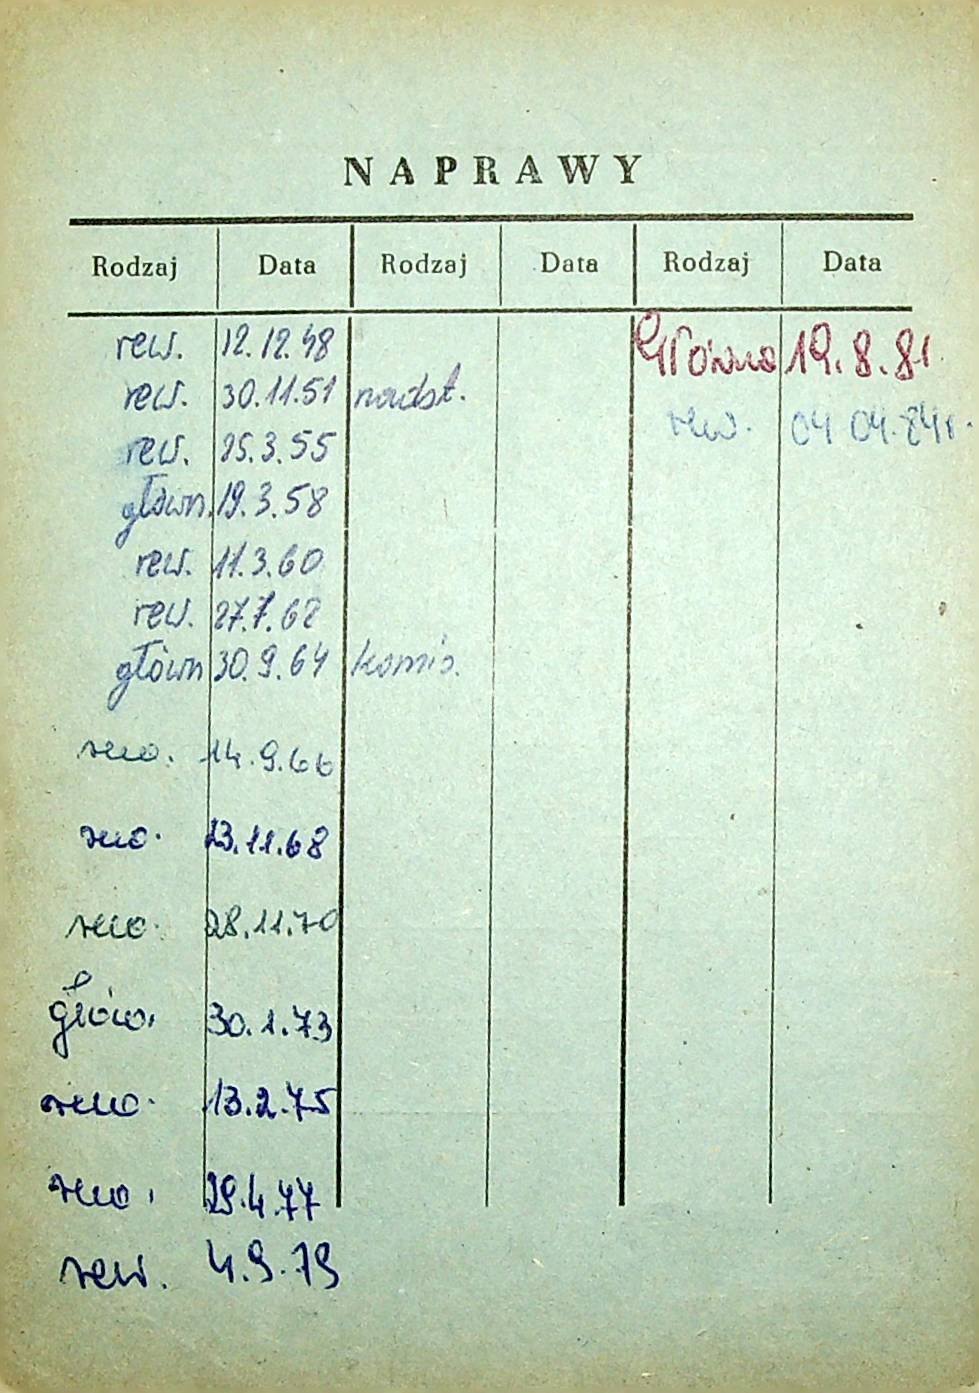 NAPRAWY
Rodzaj Data Rodzaj Data Rodzaj Data
rew. 12.12.48 Główna 19.8.81.
rew. 30.11.51 nadst. rew. 04 04.84r.
rew. 25.3.55
główn. 19.3.58
rew. 11.3.60
rew. 27.7.62
główn 30.9.64 komis.
rew. 14.9.66
rew. 23.11.68
rew. 28.11.70
głów. 30.1.73
rew. 13.2.75
rew. 29.4.77
rew. 4.9.79